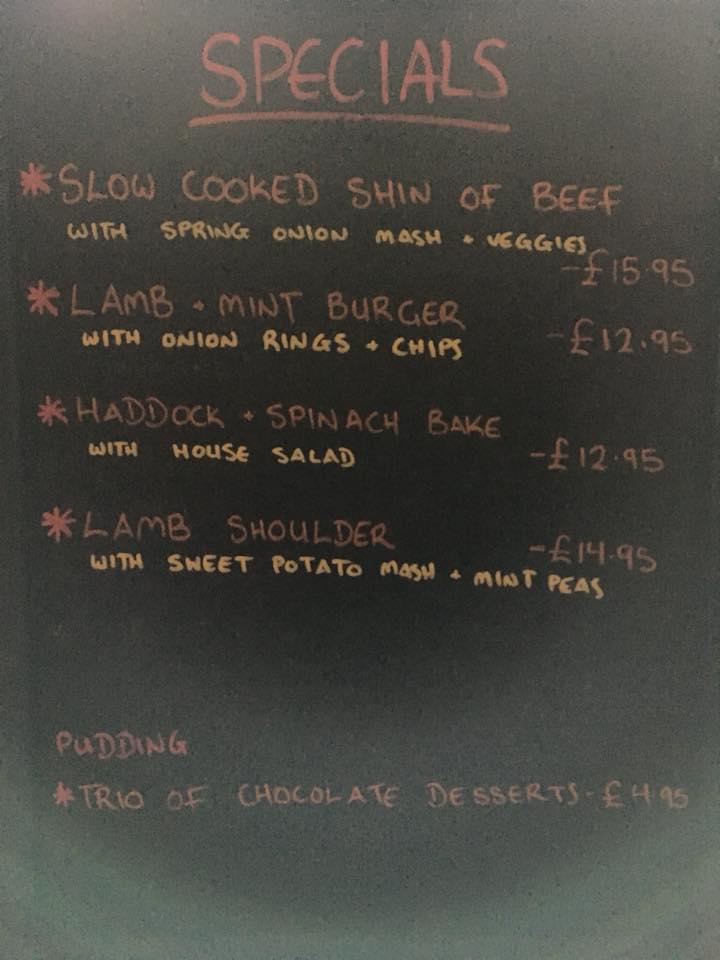 SPECIALS
* SLOW COOKED SHIN OF BEEF
WITH SPRING ONION MASH + VEGGIES
-£15.95
* LAMB + MINT BURGER
WITH ONION RINGS + CHIPS
-£12.95
* HADDOCK + SPINACH BAKE
WITH HOUSE SALAD
-£12.95
* LAMB SHOULDER
-£14.95
WITH SWEET POTATO MASH + MINT PEAS
PUDDING
* TRIO OF CHOCOLATE DESSERTS-£4.95